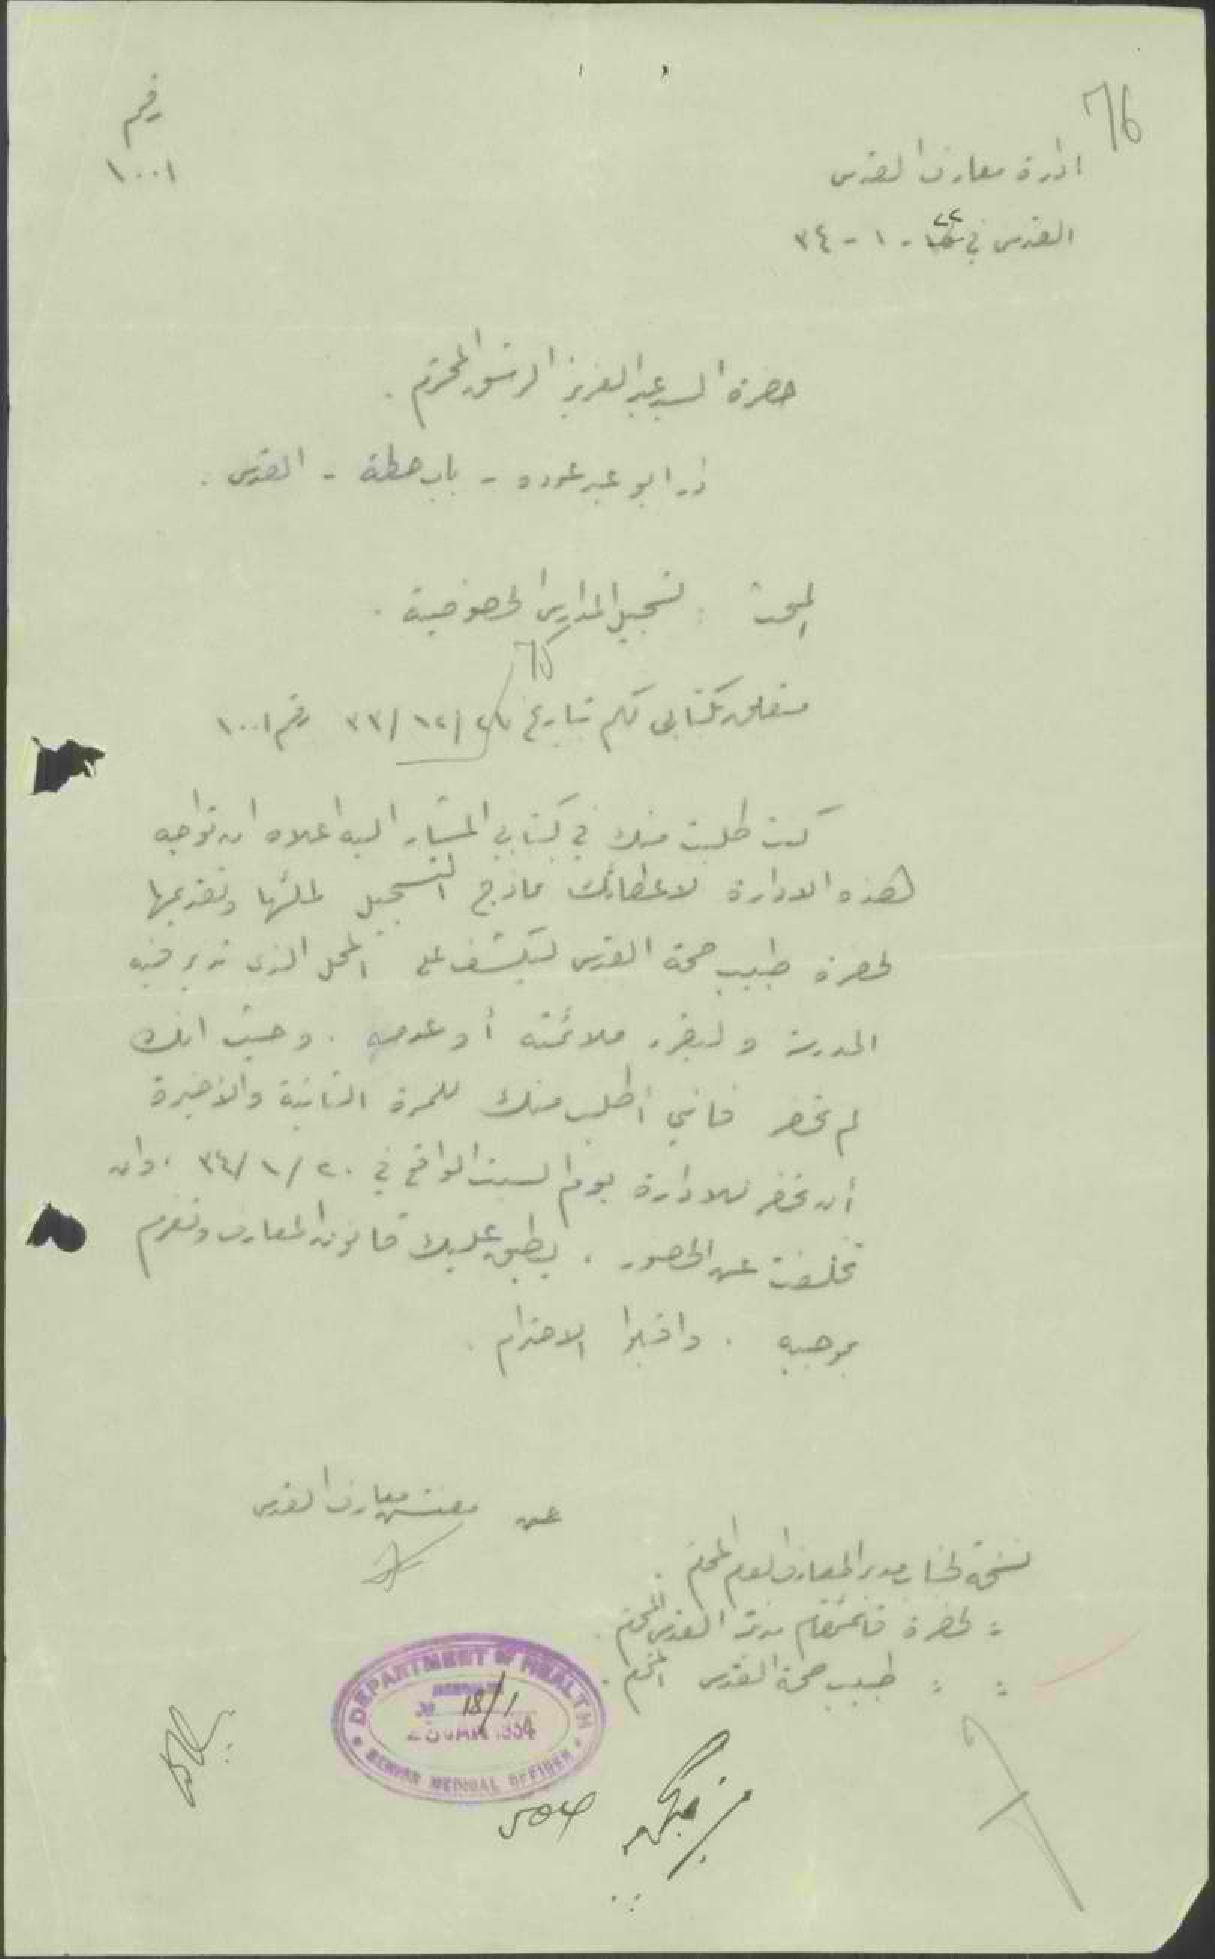 76
رقم
١٠٠١
ادارة معارف القدس
القدس في ٢٢ - ١ - ٣٤
حضرة السيد عبد العزيز المحترم .
دار ابو عبد عوده - باب حطة - القدس .
المبحث : تسجيل المدارس الخصوصية .
75
متعلق بكتابي لكم تاريخ /١٢/٣٣ رقم ١٠٠١
كنت طلبت منك في كتابي المشار اليه اعلاه ان تواجه
هذه الادارة لاعطائك نماذج التسجيل لملئها وتقديمها
لحضرة طبيب صحة القدس ليكشف على المحل الذي تدير فيه
المدرسة وليقرر ملائمته أو عدمه . وحيث انك
لم تحضر فاني أطلب منك للمرة الثانية والأخيرة
أن تحضر للادارة يوم السبت الواقع في ٢٠/١/٣٤ ، وان
تخلفت عن الحضور ، يطبق عليك قانون المعارف وتغرم
بموجبه . واقبلوا الاحترام .
عن مفتش معارف القدس
نسخة لجناب مدير المعارف العام المحترم .
: لحضرة قائمقام القدس المحترم .
: : طبيب صحة القدس المحترم .
DEPARTMENT OF HEALTH
18/1
JAN 1934
SENIOR MEDICAL OFFICER